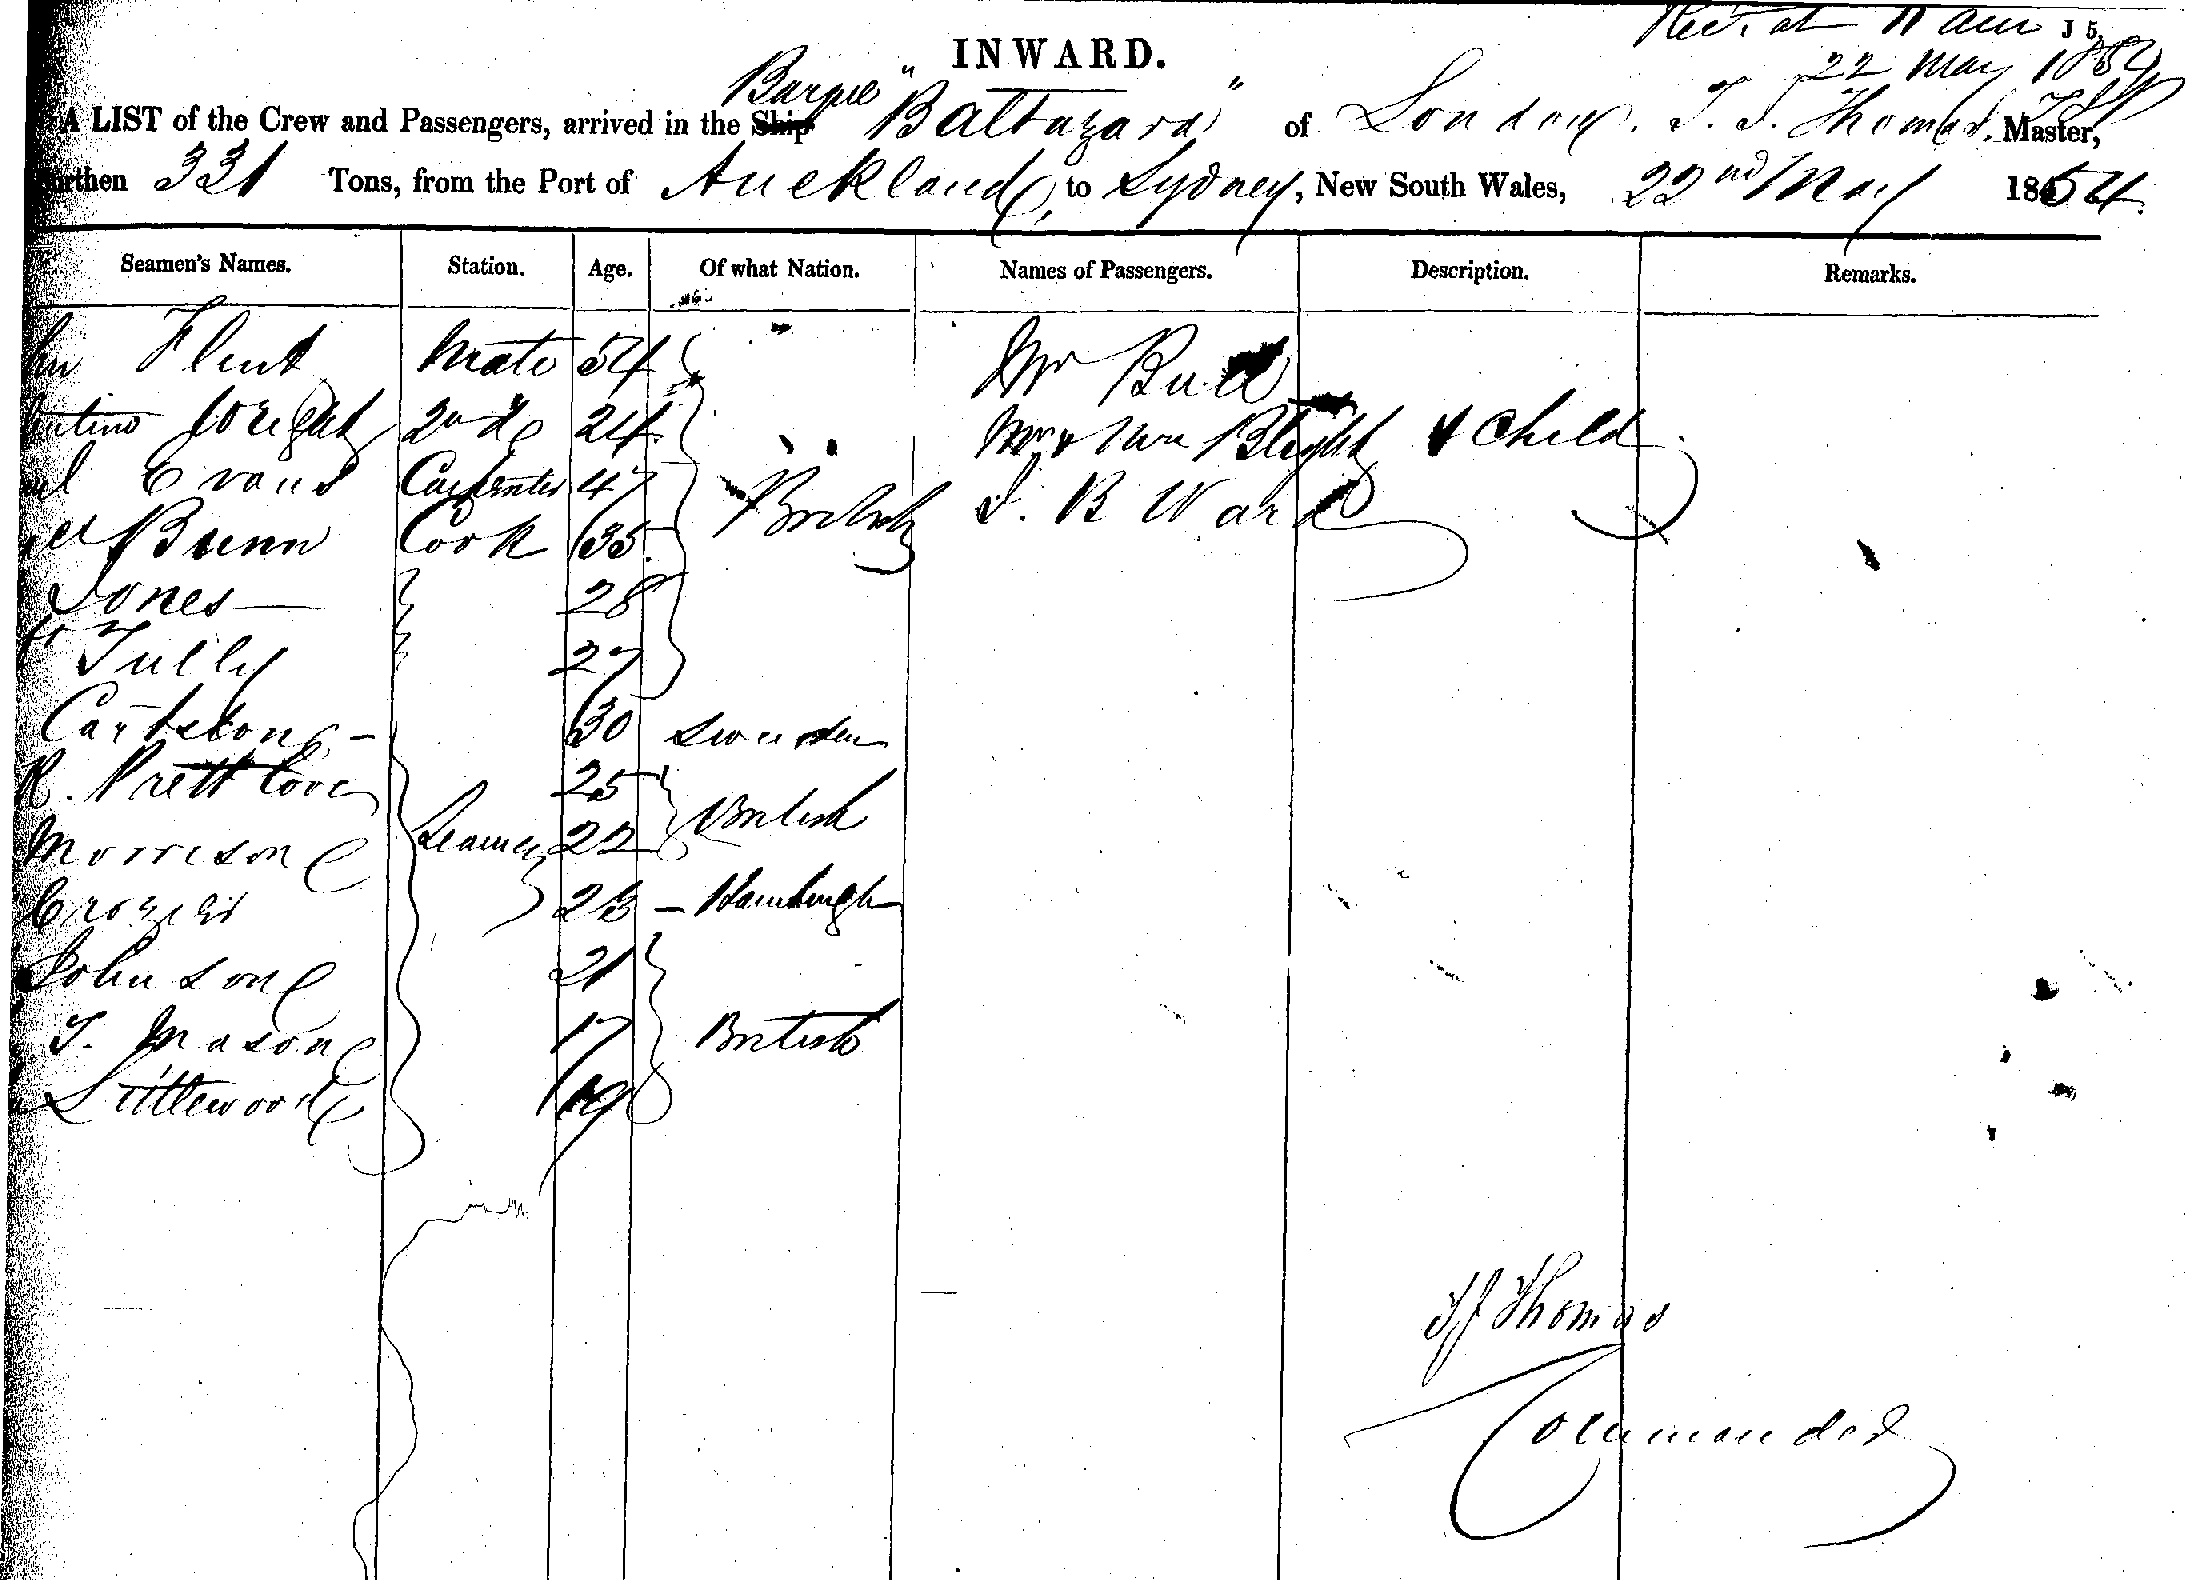 Recd at 11 am J 5
22 May 1854
INWARD.
Barque
A LIST of the Crew and Passengers, arrived in the Ship "Baltazara" of London. T. J. Thomas, Master,
Burthen 331 Tons, from the Port of Auckland, to Sydney, New South Wales, 22nd May 1854.
Seamen's Names. Station. Age. Of what Nation. Names of Passengers. Description. Remarks.
Flent Mate 54 Mr Bull
Wright 2nd do 24 Mr & Mrs Blight & Child
Evans Carpenter 47 British J. B Ward
Bunn Cook 35
Jones 28
Tully 27
Carlston 30 Sweden
R. Prettlove 25 British
Morrison Seamen 22
Crozier 23 - Hamburgh
Johnson 21
T. Mason 17 British
Littlewood 19
TJ Thomas
Commander